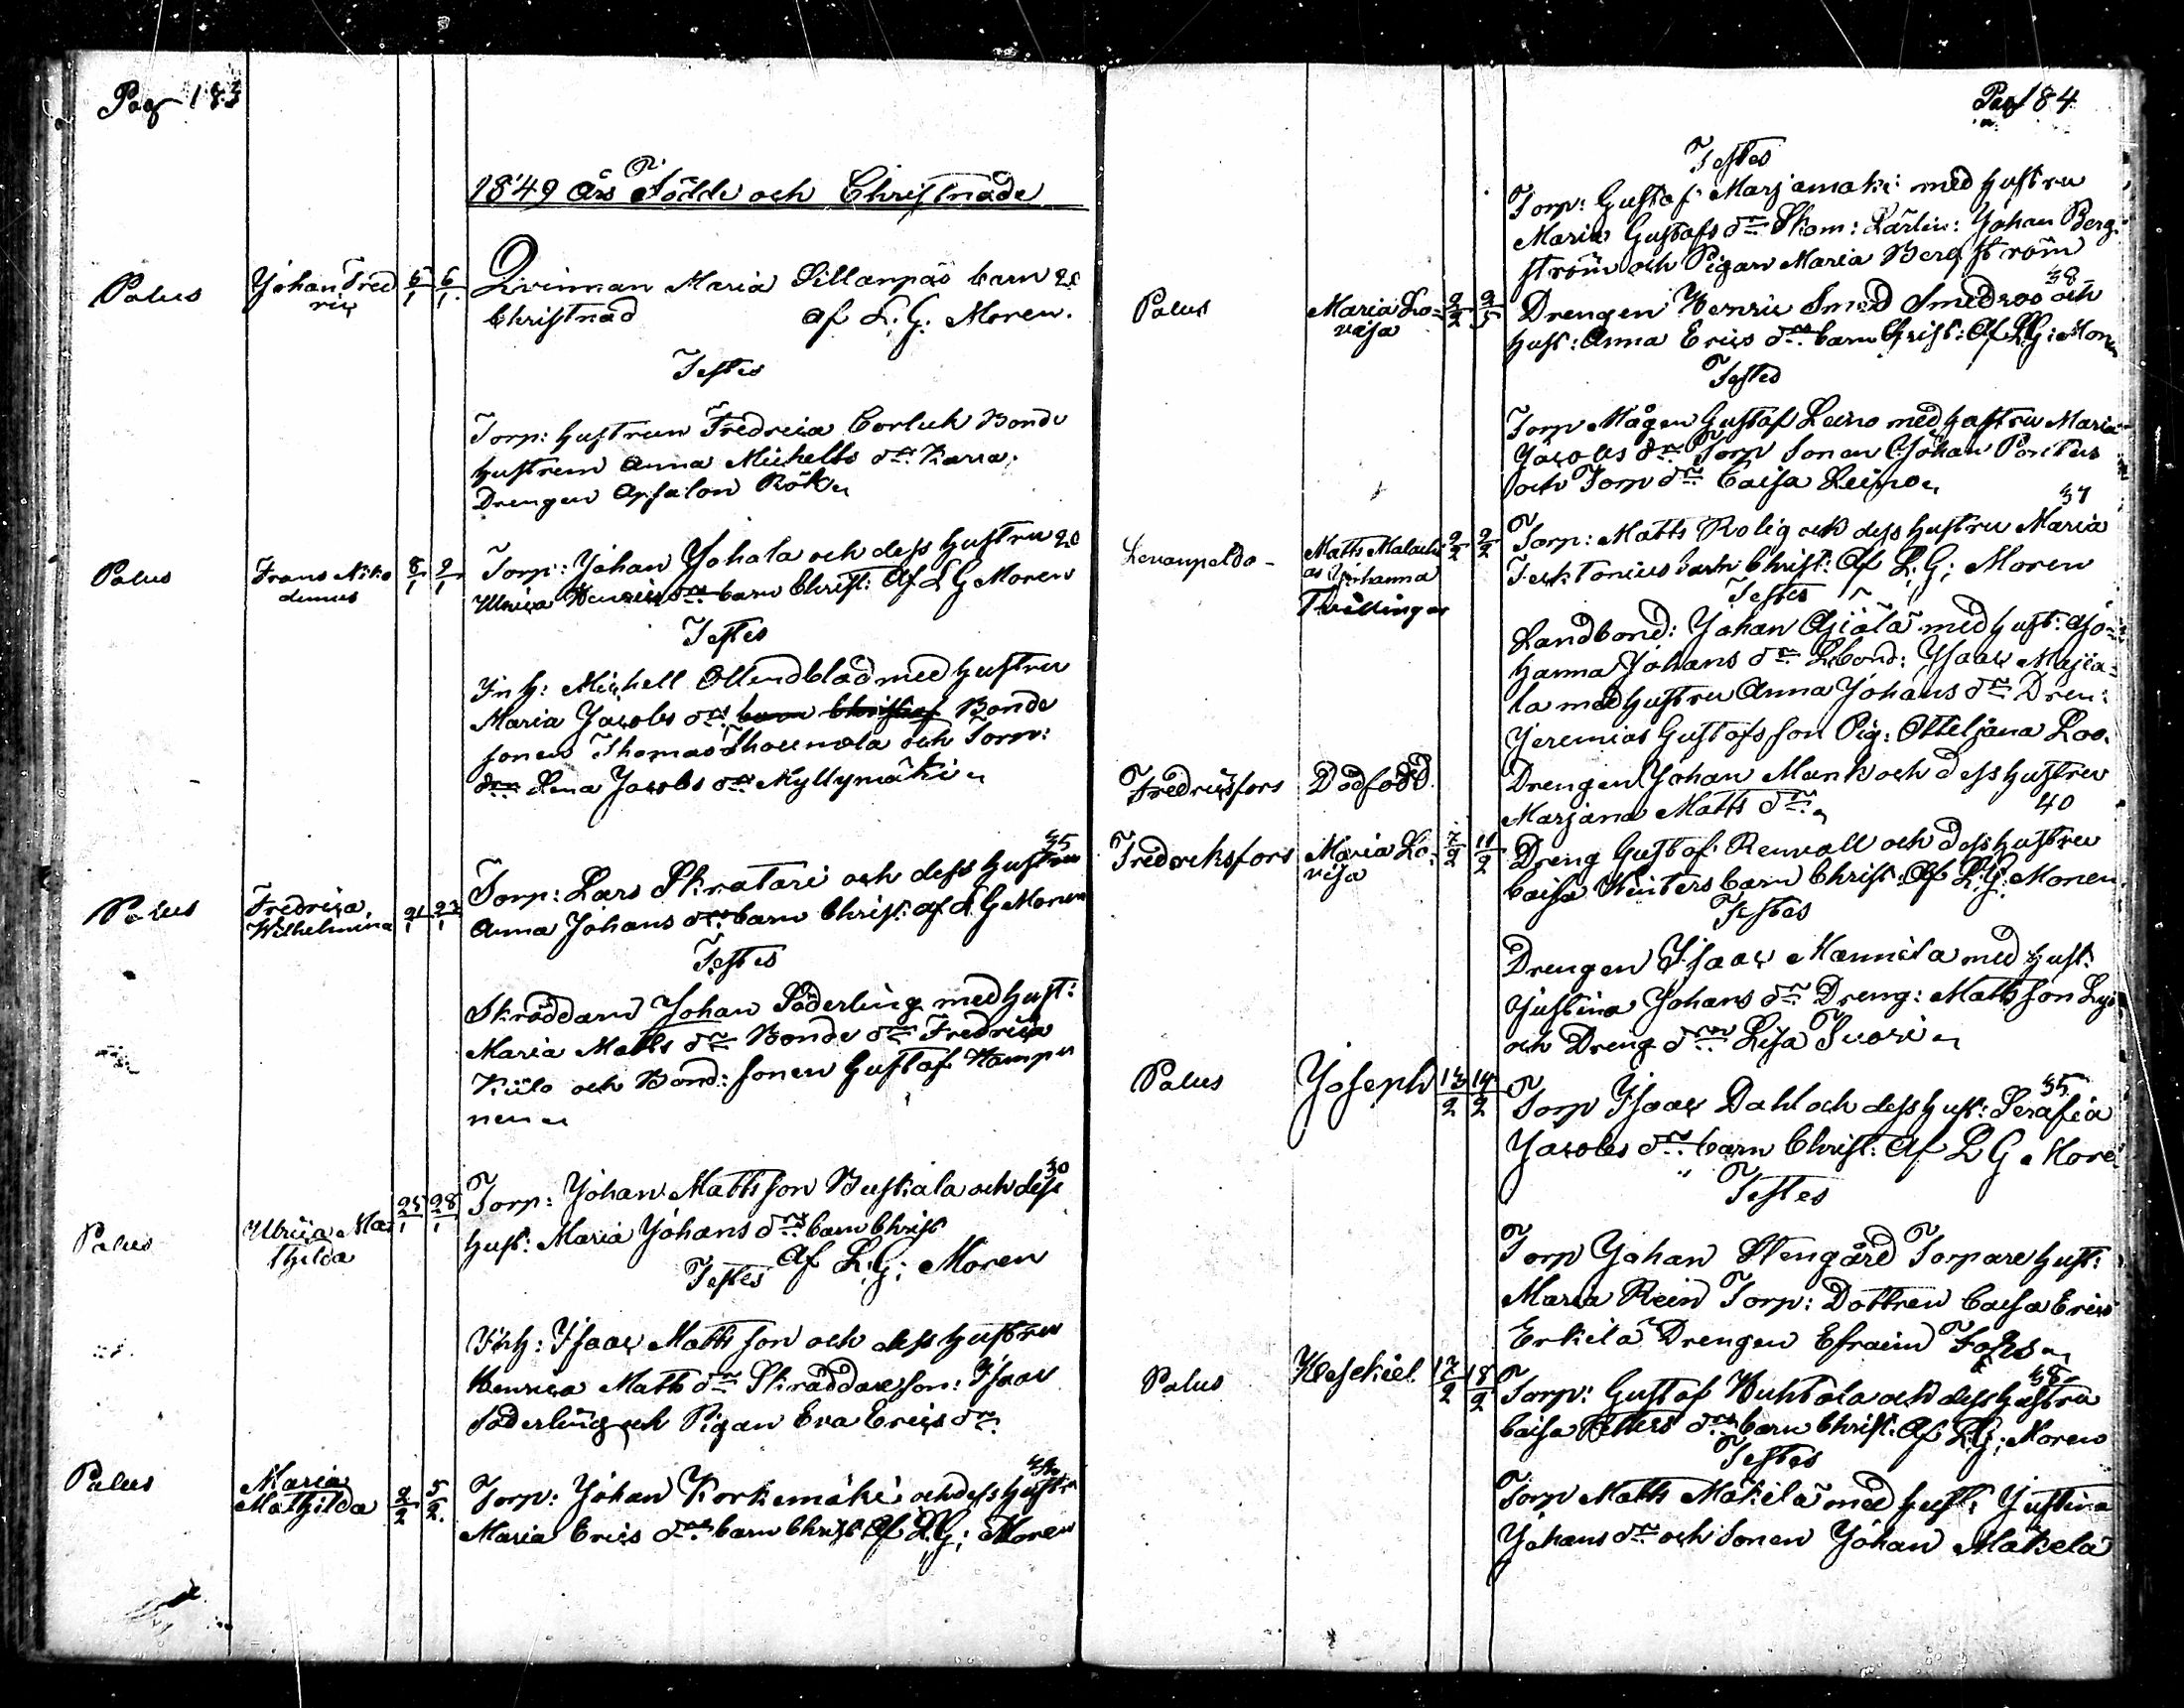 Pag 183
1849 Års Födde och Christnade
Palus Johan Fred 5/1 6/1 Qvinnan Maria Sillanpää barn 20
ric Christnad af L. G. Moren.
Testes
Torp: hustrun Fredrica Borluk Bonde
hustrun Anna Michells dr. Karra.
Drengen Apsalon Rök
Palus Frans Niko 8/1 9/1 Torp: Johan Yohala och dess hustru 20
demus Ulrica Henrics dr. barn Christ: Af L G Moren
Testes
Inh: Michell Ollendblad med hustru
Maria Jacobs dr. barn Christ af Bonde
sonen Thomas och Torp:
dr. Lena Jacobs dr. Myllymäki
35
Palus Fredrica 21/1 23/1 Torp: Lars Skratari och dess hustru
Wilhelmina Anna Johans dr. barn Christ: af L G Moren
Testes
Skräddarn Johan Söderling med hust:
Maria Matts dr. Bonde dr. Fredrica
Kiilo och Bond: sonen Gustaf Hamp
nen
30
Palus Ulrica Ma 25/1 28/1 Torp: Johan Mattsson Buskala och dess
thilda hust: Maria Johans dr. barn Christ
Af L: G: Moren
Testes
Inh: Isaac Matts son och dess hustru
Henrica Matts dr. Skräddare son: Isaac
Söderling och Pigan Eva Erics dr.
Palus Maria 2/2 5/2. Torp: Johan Korkemäki och dess hustru
Mathilda Maria Erics dr. barn Christ Af L. G: Moren
Pag 184
Testes
Torp: Gustaf Marjamaki med hustru
Maria Gustafs dr. Skom: Lärlin: Johan Berg
ström och Pigan Maria Bergström
38
Palus Maria Lo= 2/2 Drengen Henric Smed Smedroo och
visa hust: Anna Erics dr. barn Christ: Af L G: Moren
Testes
Torp Mågen Gustaf Leino med hustru Maria
Jacobs dr. Torp Sonen Johan Pontus
och Torp dr. Caisa Leino
37
Levanpeldo- Matts Malachi 2/2 2/2 Torp: Matts Rolig och dess hustru Maria
as Johanna Tecktonius barn Christ: Af L. G; Moren
Tvillingar Testes
Landbond: Johan Ajiälä med hust: Jo=
hanna Johans dr. Lbond: Isaac Majia=
la med hustru Anna Johans dr. Dren:
Jeremias Gustafs son Pig: Otteljana Loo.
Fredricsfors Dödfödd. Drengen Johan Munk och dess hustru
Marjana Matts dr.
40
Fredrcksfors Maria Lo= 7/2 11/2 Dreng Gustaf Renvall och dess hustru
visa Caisa Winters barn Christ: Af L. G: Moren
Testes
Drengen Isaac Mannila med hust:
Justina Johans dr. Dreng: Matts son
och Dreng dr. Lisa Suori
35
Palus Joseph 13/2 14/2 Torp Isaac Dahl och dess hust: Serafia
Jacobs dr. barn Christ: Af L G More
Testes
Torp Johan Stengård Torpare hust:
Maria Rein Torp: Dottren Caisa Erics
Erkilä Drengen Efraim
38
Palus Heschiel 17/2 18/2 Torp: Gustaf Huhtala och dess hustru
Caisa Petters dr. barn Christ. Af L. G; Moren
Testes
Torp Matts Mäkilä med hust: Justina
Johans dr. och Sonen Johan Mäkelä